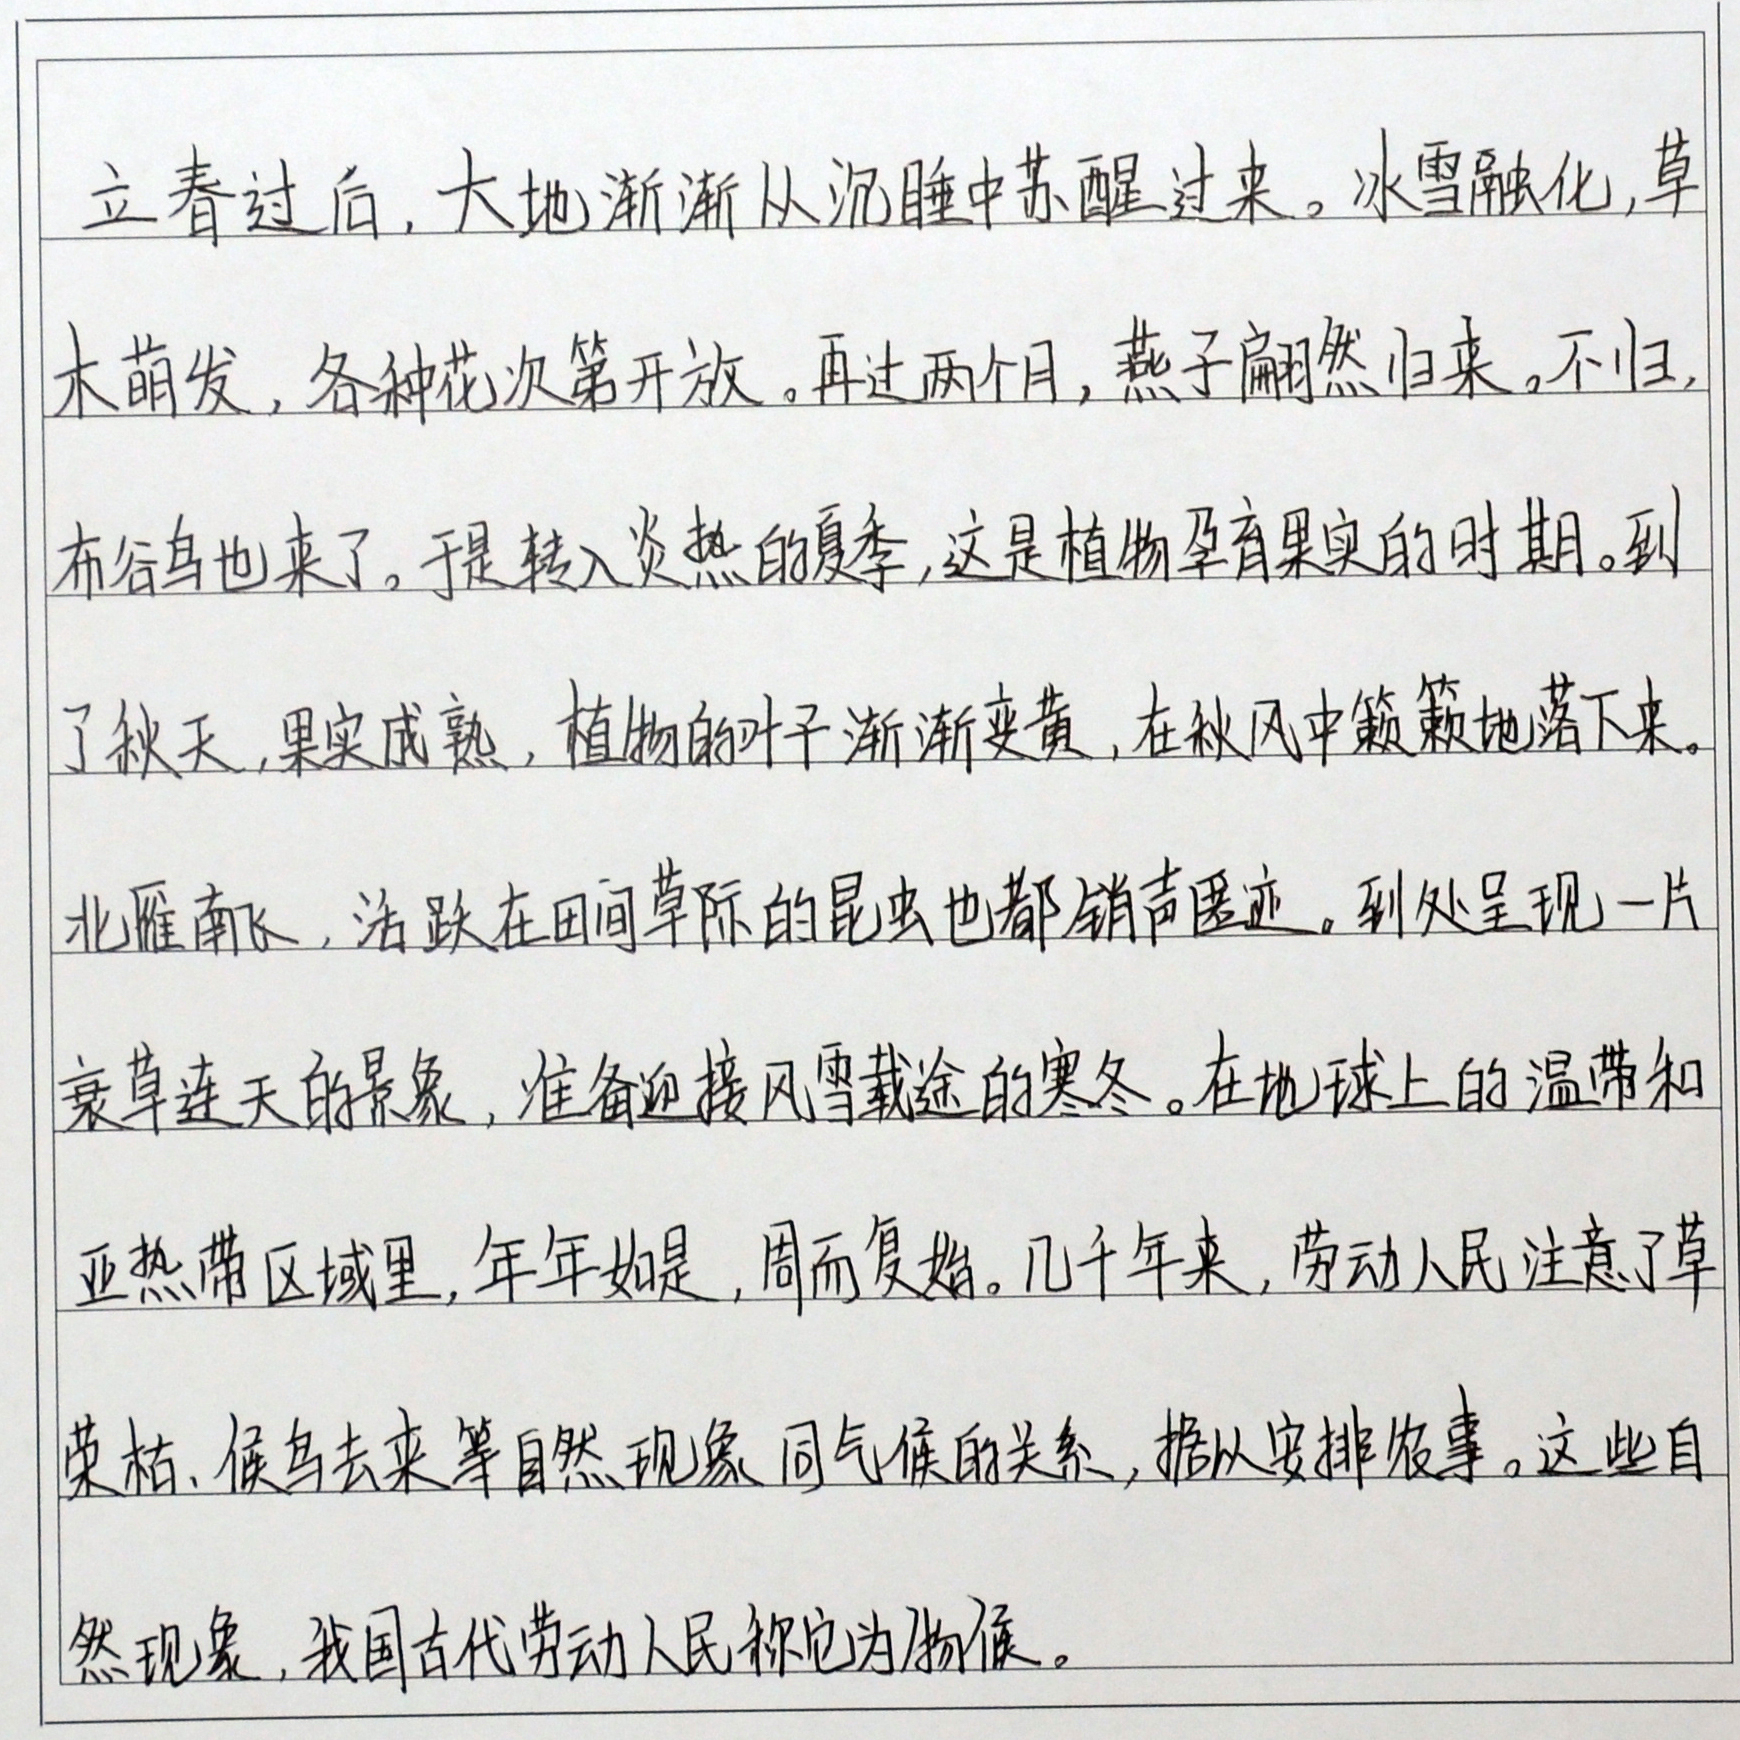 立春过后，大地渐渐从沉睡中苏醒过来。冰雪融化，草
木萌发，各种花次第开放。再过两个月，燕子翩然归来。不归，
布谷鸟也来了。于是转入炎热的夏季，这是植物孕育果实的时期。到
了秋天，果实成熟，植物的叶子渐渐变黄，在秋风中簌簌地落下来。
北雁南飞，活跃在田间草际的昆虫也都销声匿迹。到处呈现一片
衰草连天的景象，准备迎接风雪载途的寒冬。在地球上的温带和
亚热带区域里，年年如是，周而复始。几千年来，劳动人民注意了草
荣枯、候鸟去来等自然现象同气候的关系，据以安排农事。这些自
然现象，我国古代劳动人民称它为物候。